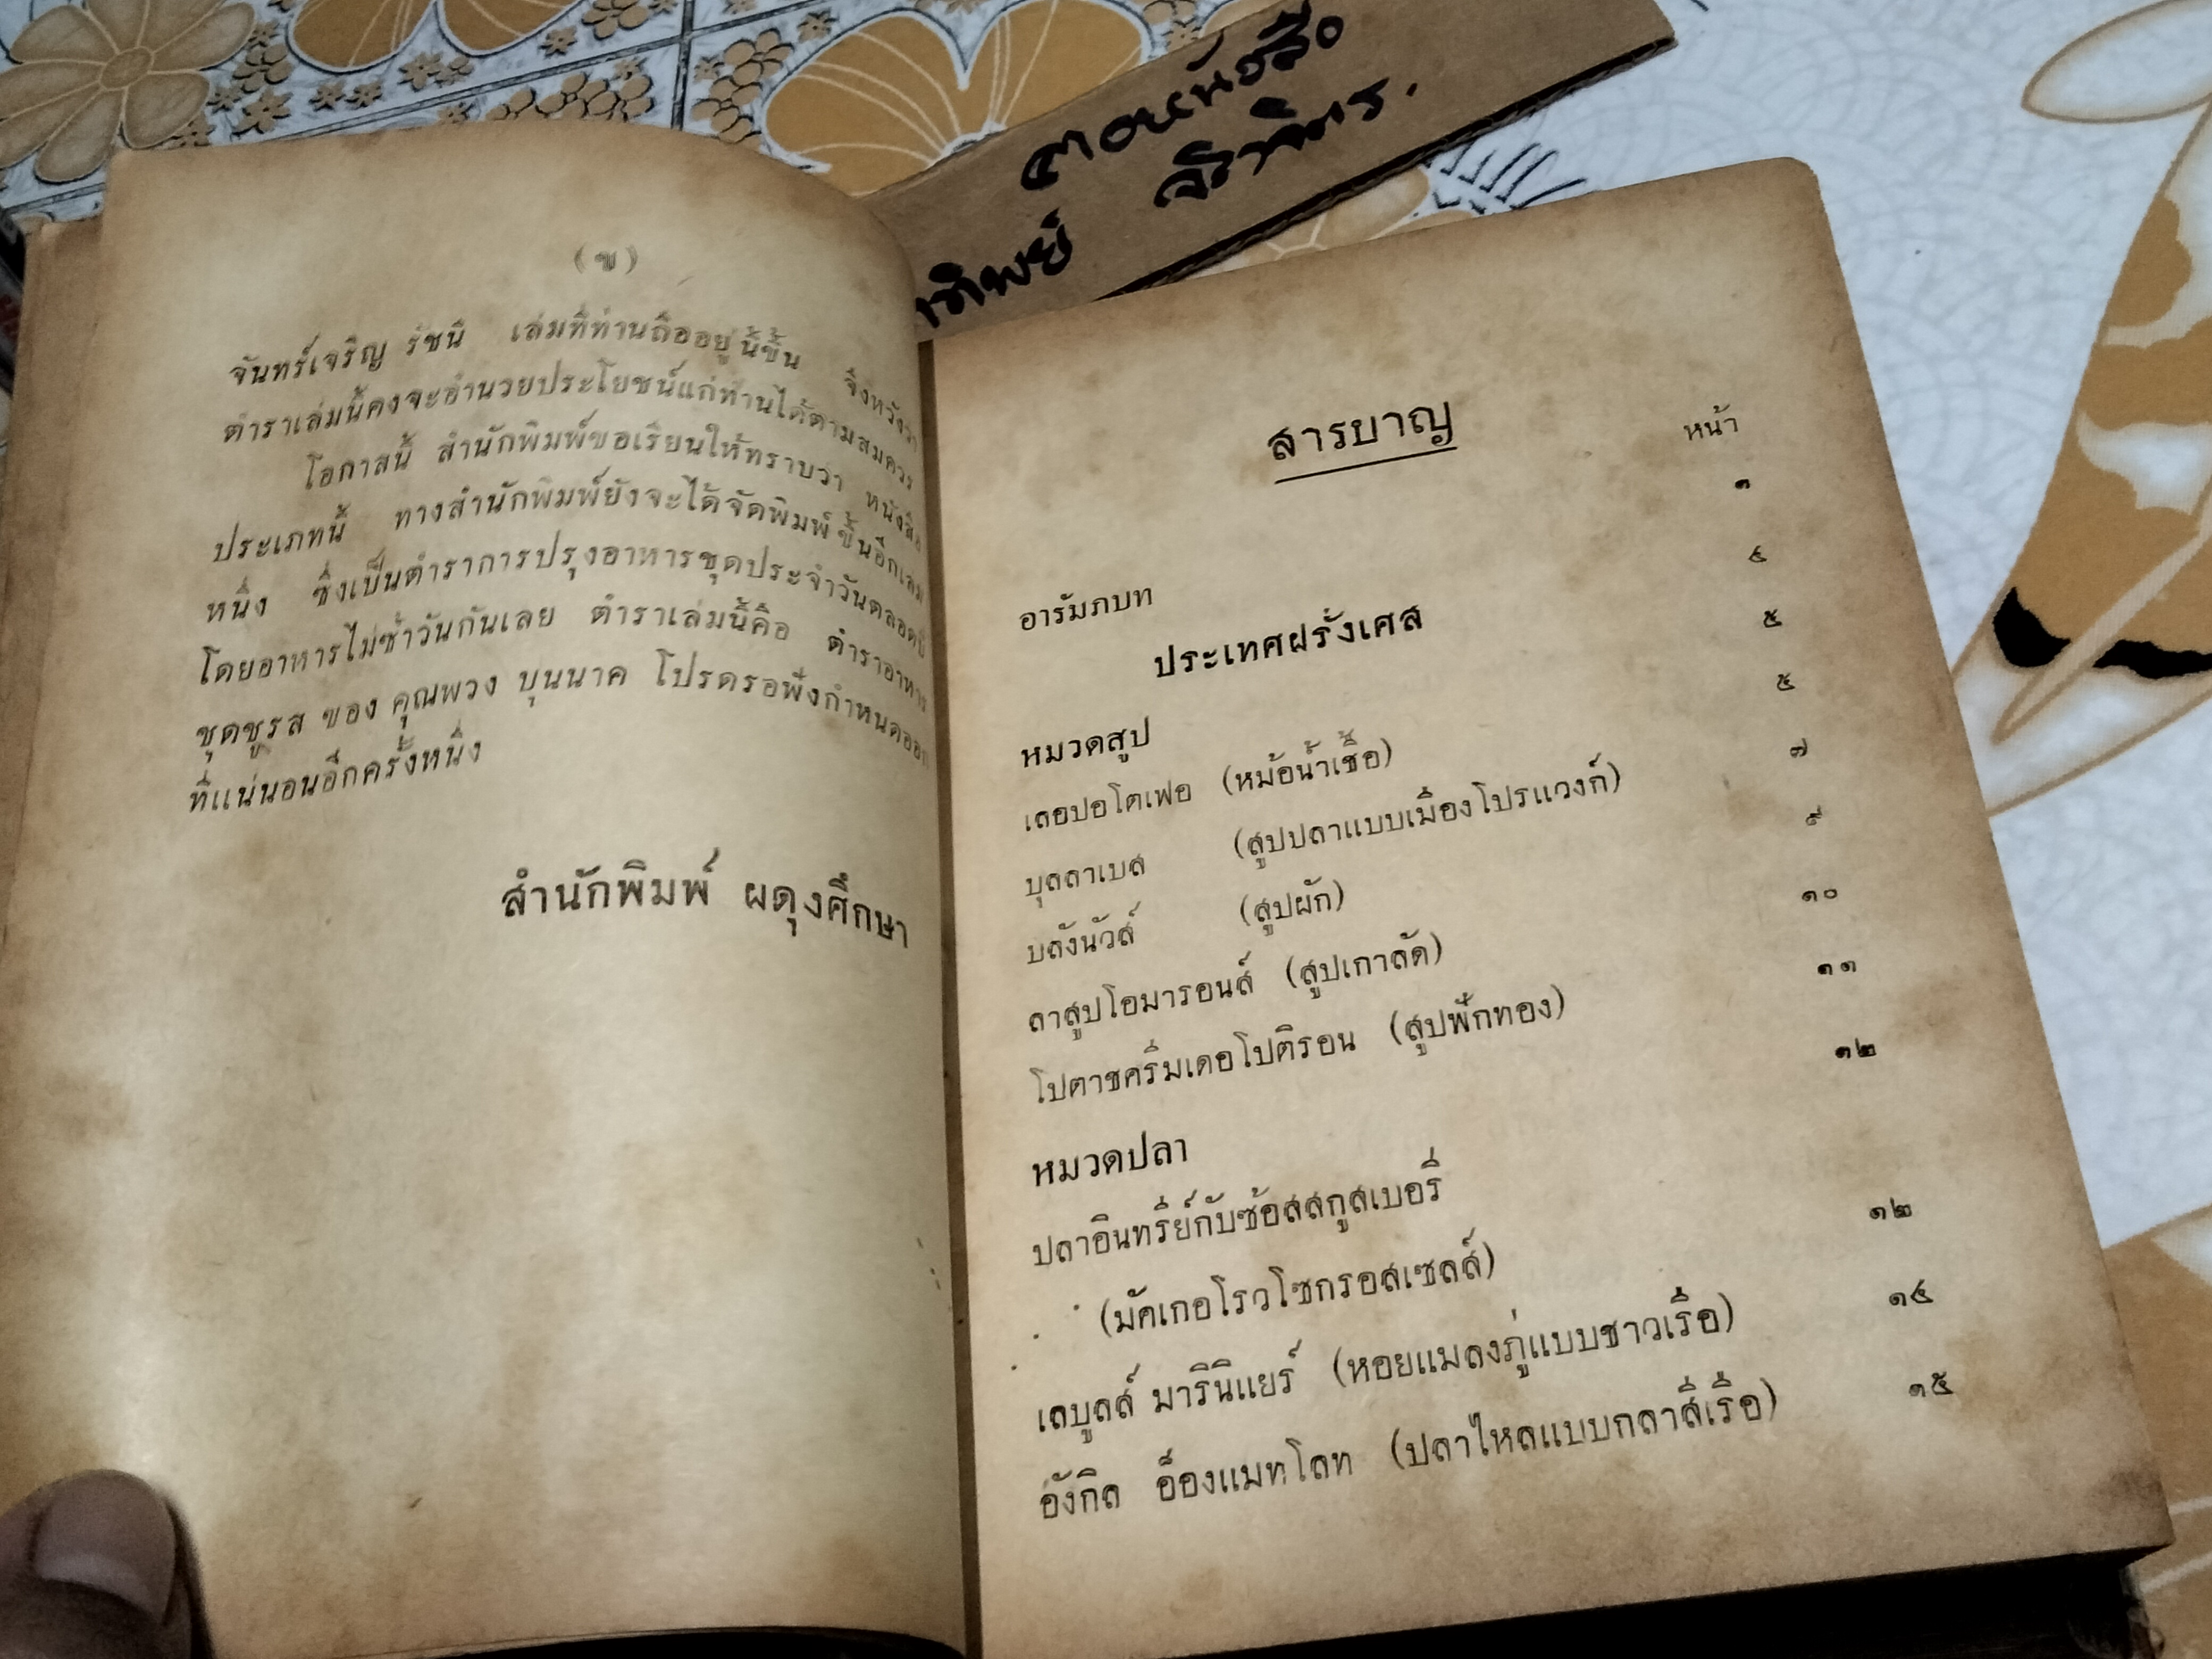 ตาทอหนังสือ
าทิพย์ จิราพิตร.
(ข)
จันทร์เจริญ รัชนี เล่มที่ท่านถืออยู่นี้ขึ้น จึงหวังว่า
ตำราเล่มนี้คงจะอำนวยประโยชน์แก่ท่านได้ตามสมควร
โอกาสนี้ สำนักพิมพ์ขอเรียนให้ทราบว่า หนังสือ
ประเภทนี้ ทางสำนักพิมพ์ยังจะได้จัดพิมพ์ขึ้นอีกเล่ม
หนึ่ง ซึ่งเป็นตำราการปรุงอาหารชุดประจำวันตลอดปี
โดยอาหารไม่ซ้ำวันกันเลย ตำราเล่มนี้คือ ตำราอาหาร
ชุดชูรส ของ คุณพวง บุนนาค โปรดรอฟังกำหนดออก
ที่แน่นอนอีกครั้งหนึ่ง
สำนักพิมพ์ ผดุงศึกษา
สารบาญ
หน้า
อารัมภบท ๑
ประเทศฝรั่งเศส ๔
หมวดสูป ๕
เลอปอโตเฟอ (หม้อน้ำเชื้อ) ๕
บุลลาเบส (สูปปลาแบบเมืองโปรแวงก์) ๗
บลังนัวส์ (สูปผัก) ๙
ลาสูปโอมารอนส์ (สูปเกาลัด) ๑๐
โปตาชครีมเดอโปติรอน (สูปฟักทอง) ๑๑
หมวดปลา ๑๒
ปลาอินทรีย์กับซ้อสสกูสเบอรี่
(มัคเกอโรวโซกรอสเซลส์) ๑๒
เลบูลส์ มารินิแยร์ (หอยแมลงภู่แบบชาวเรือ) ๑๔
อังกิล อ็องแมทโลท (ปลาไหลแบบกลาสีเรือ) ๑๕